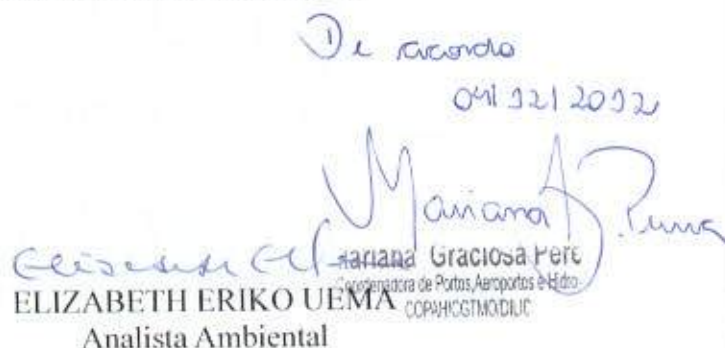 De acordo
04/12/2012
Mariana
Mariana Graciosa Pere
Coordenadora de Portos, Aeroportos e Hidro-
COPAH/CGTMO/DILIC
ELIZABETH ERIKO UEMA
Analista Ambiental